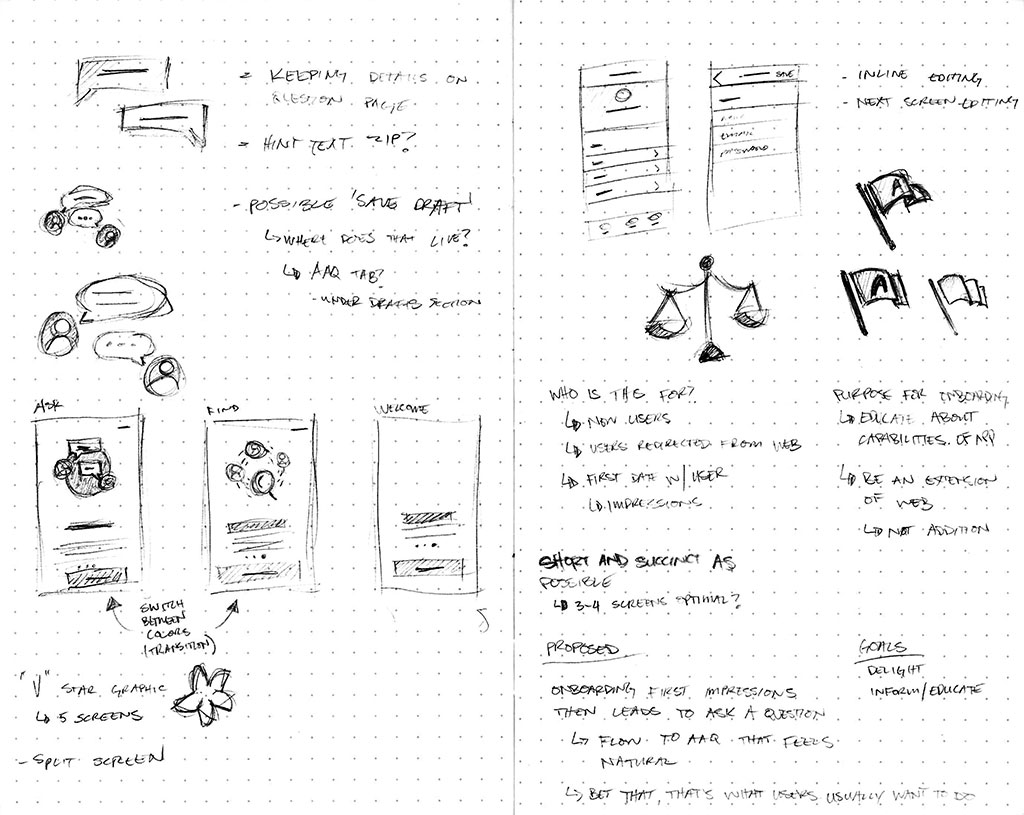 = KEEPING DETAILS ON
QUESTION PAGE
= HINT TEXT ZIP?
- POSSIBLE 'SAVE DRAFT'
↳ WHERE DOES THAT LIVE?
↳ AAQ TAB?
- UNDER DRAFTS SECTION
ASK
FIND
WELCOME
SWITCH
BETWEEN
COLORS
(TRANSITION)
"V" STAR GRAPHIC
↳ 5 SCREENS
- SPLIT SCREEN
SAVE
NAME
EMAIL
PASSWORD
- INLINE EDITING
- NEXT SCREEN EDITING
A
A
WHO IS THIS FOR?
↳ NEW USERS
↳ USERS REDIRECTED FROM WEB
↳ FIRST DATE W/ USER
↳ IMPRESSIONS
PURPOSE FOR ONBOARDING
↳ EDUCATE ABOUT
CAPABILITIES OF APP
↳ BE AN EXTENSION
OF WEB
↳ NOT ADDITION
SHORT AND SUCCINCT AS
POSSIBLE
↳ 3-4 SCREENS OPTIMAL?
PROPOSED
ONBOARDING FIRST IMPRESSIONS
THEN LEADS TO ASK A QUESTION
↳ FLOW TO AAQ THAT FEELS
NATURAL
↳ BET THAT, THAT'S WHAT USERS USUALLY WANT TO DO
GOALS
DELIGHT
INFORM/EDUCATE